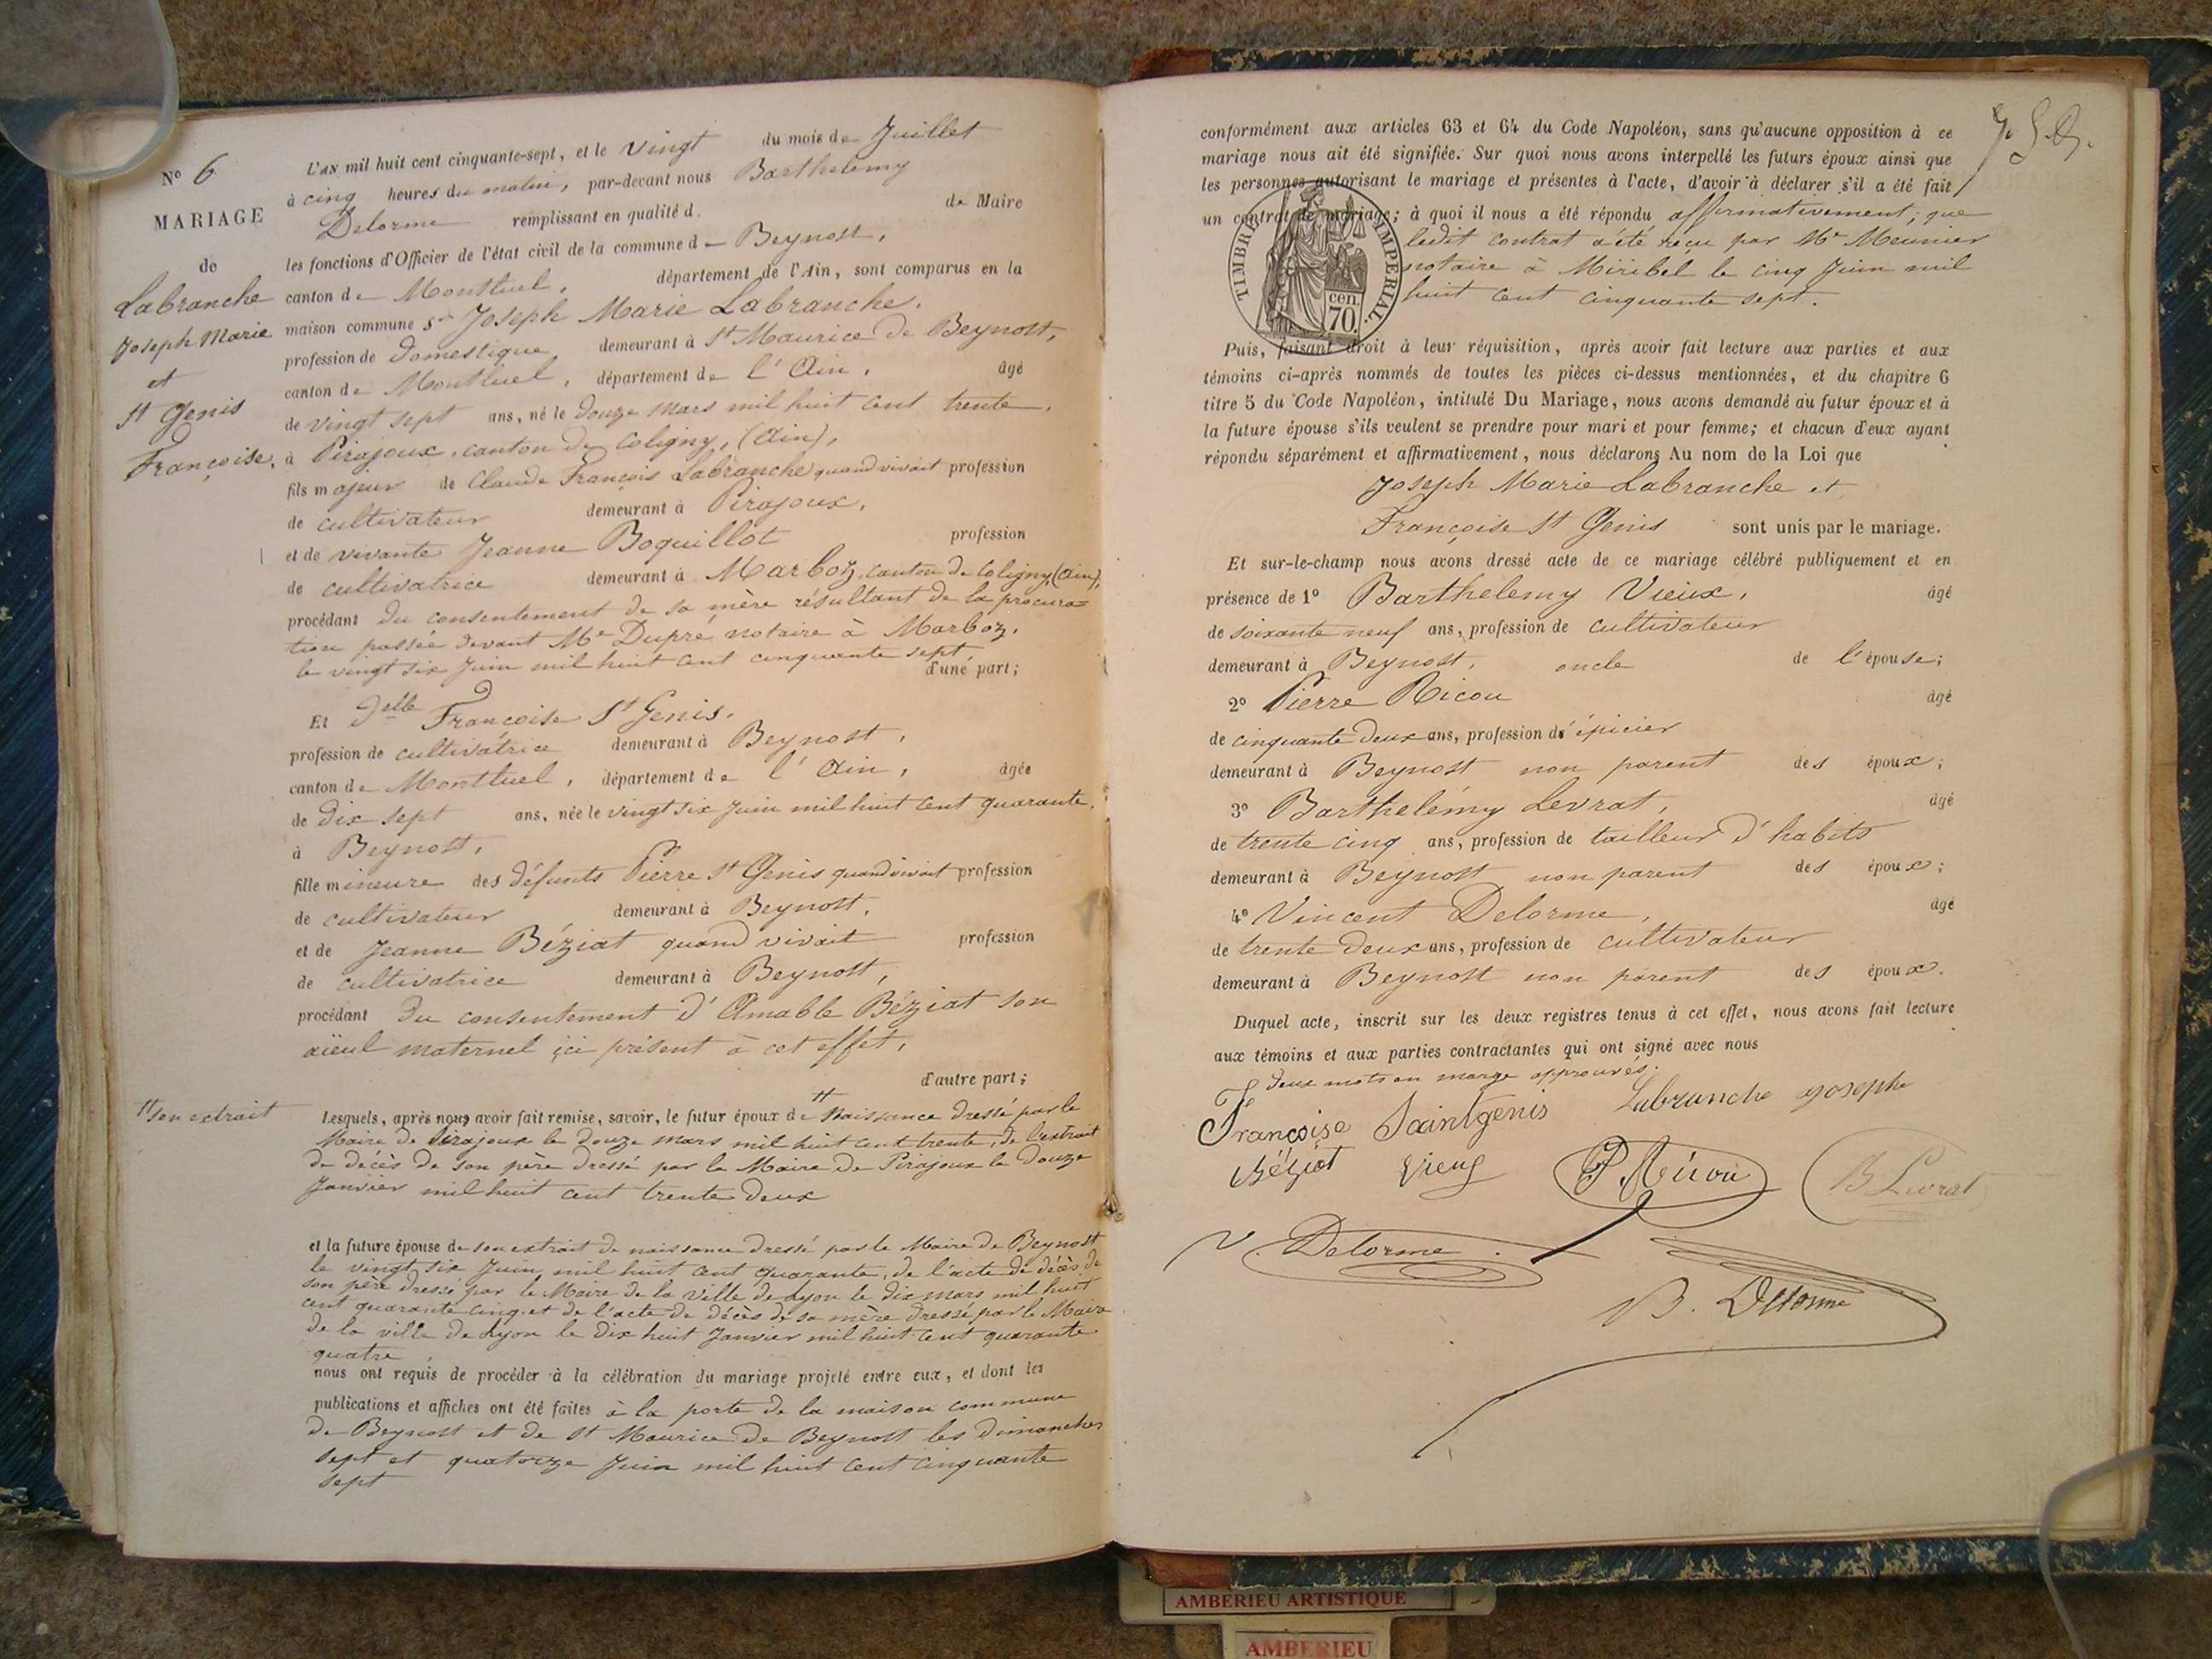 N° 6
MARIAGE
de
Labranche
Joseph Marie
et
St Genis
Françoise.
L'AN mil huit cent cinquante-sept, et le vingt du mois de Juillet
à cinq heures du matin, par-devant nous Barthelemy
Delorme remplissant en qualité d. de Maire
les fonctions d'Officier de l'état civil de la commune de Beynost,
canton de Montluel, département de l'Ain, sont comparus en la
maison commune sr Joseph Marie Labranche,
profession de Domestique, demeurant à St Maurice de Beynost,
canton de Montluel, département de l'Ain, âgé
de vingt sept ans, né le douze Mars mil huit cent trente,
à Pirajoux, canton de Coligny, (Ain),
fils majeur de Claude François Labranche quand vivait profession
de cultivateur demeurant à Pirajoux,
et de vivante Jeanne Boquillot profession
de cultivatrice demeurant à Marboz, canton de Coligny, (Ain),
procédant du consentement de sa mère résultant de la procura=
tion passée devant Me Dupré notaire à Marboz,
le vingt six Juin mil huit cent cinquante sept,
d'une part;
Et Delle Françoise St Genis.
profession de cultivatrice demeurant à Beynost,
canton de Montluel, département de l'Ain, âgée
de dix sept ans, née le vingt six Juin mil huit cent quarante,
à Beynost,
fille mineure des défunts Pierre St Genis quand vivait profession
de cultivateur demeurant à Beynost,
et de Jeanne Béziat quand vivait profession
de cultivatrice demeurant à Beynost,
procédant du consentement d'Amable Béziat son
aïeul maternel ici présent à cet effet,
d'autre part;
son extrait
Lesquels, après nous avoir fait remise, savoir, le futur époux de naissance dressé par le
Maire de Pirajoux le douze mars mil huit cent trente, de l'extrait
de décès de son père dressé par le Maire de Pirajoux le douze
Janvier mil huit cent trente deux
et la future épouse de son extrait de naissance dressé par le Maire de Beynost
le vingt six Juin mil huit cent quarante, de l'acte de décès de
son père dressé par le Maire de la ville de Lyon le dix mars mil huit
cent quarante cinq et de l'acte de décès de sa mère dressé par le Maire
de la ville de Lyon le dix huit Janvier mil huit cent quarante
quatre
nous ont requis de procéder à la célébration du mariage projeté entre eux, et dont les
publications et affiches ont été faites à la porte de la maison commune
de Beynost et de St Maurice de Beynost les dimanches
sept et quatorze Juin mil huit cent cinquante
sept
conformément aux articles 63 et 64 du Code Napoléon, sans qu'aucune opposition à ce
mariage nous ait été signifiée. Sur quoi nous avons interpellé les futurs époux ainsi que
les personnes autorisant le mariage et présentes à l'acte, d'avoir à déclarer s'il a été fait
un contrat de mariage; à quoi il nous a été répondu affirmativement, que
ledit contrat a été reçu par Me Meunier
notaire à Miribel le cinq Juin mil
huit cent cinquante sept.
TIMBRE IMPERIAL.
cen.
70.
Puis, faisant droit à leur réquisition, après avoir fait lecture aux parties et aux
témoins ci-après nommés de toutes les pièces ci-dessus mentionnées, et du chapitre 6
titre 5 du Code Napoléon, intitulé Du Mariage, nous avons demandé au futur époux et à
la future épouse s'ils veulent se prendre pour mari et pour femme; et chacun d'eux ayant
répondu séparément et affirmativement, nous déclarons Au nom de la Loi que
Joseph Marie Labranche et
Françoise St Genis sont unis par le mariage.
Et sur-le-champ nous avons dressé acte de ce mariage célébré publiquement et en
présence de 1° Barthelemy Vieux, âgé
de soixante neuf ans, profession de cultivateur
demeurant à Beynost, oncle de l'épouse;
2° Pierre Ricou âgé
de cinquante deux ans, profession d'épicier
demeurant à Beynost non parent des époux;
3° Barthelémy Levrat, âgé
de trente cinq ans, profession de tailleur d'habits
demeurant à Beynost non parent des époux;
4° Vincent Delorme, âgé
de trente deux ans, profession de cultivateur
demeurant à Beynost non parent des époux.
Duquel acte, inscrit sur les deux registres tenus à cet effet, nous avons fait lecture
aux témoins et aux parties contractantes qui ont signé avec nous
deux mots en marge approuvés.
Françoise Saintgenis Labranche Joseph
Béziat Vieux P. Ricou B Levrat
V Delorme
B. Delorme
AMBERIEU ARTISTIQUE
AMBERIEU